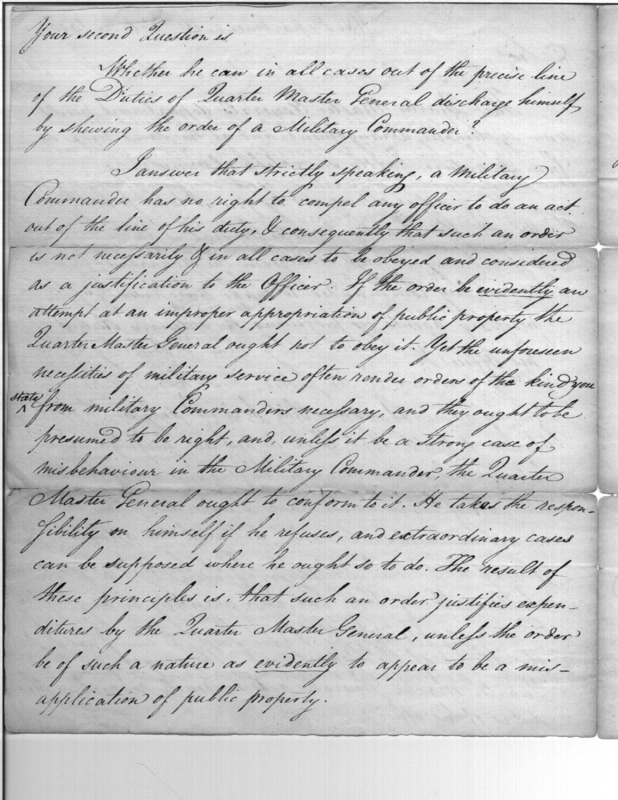 Your second Question is
Whether he can in all cases out of the precise line
of the Duties of Quarter Master General discharge himself
by shewing the order of a Military Commander?
I answer that strictly speaking, a Military
Commander has no right to compel any officer to do an act
out of the line of his duty, & consequently that such an order
is not necessarily & in all cases to be obeyed and considered
as a justification to the Officer. If the order be evidently an
attempt at an improper appropriation of public property the
Quarter Master General ought not to obey it. Yet the unforeseen
necessities of military service often render orders of the kind you
state ^ from military Commanders necessary, and they ought to be
presumed to be right, and, unless it be a strong case of
misbehaviour in the Military Commander, the Quarter
Master General ought to conform to it. He takes the respon-
sibility on himself if he refuses, and extraordinary cases
can be supposed where he ought so to do. The result of
these principles is, that such an order justifies expen-
ditures by the Quarter Master General, unless the order
be of such a nature as evidently to appear to be a mis-
application of public property.